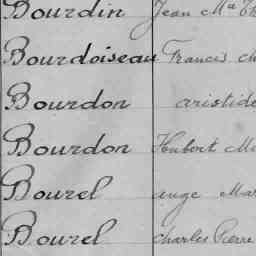 Bourdin Jean Mie Th
Bourdoiseau Francis
Bourdon aristide
Bourdon Hubert
Bourel ange Mar
Bourel charles Pierre